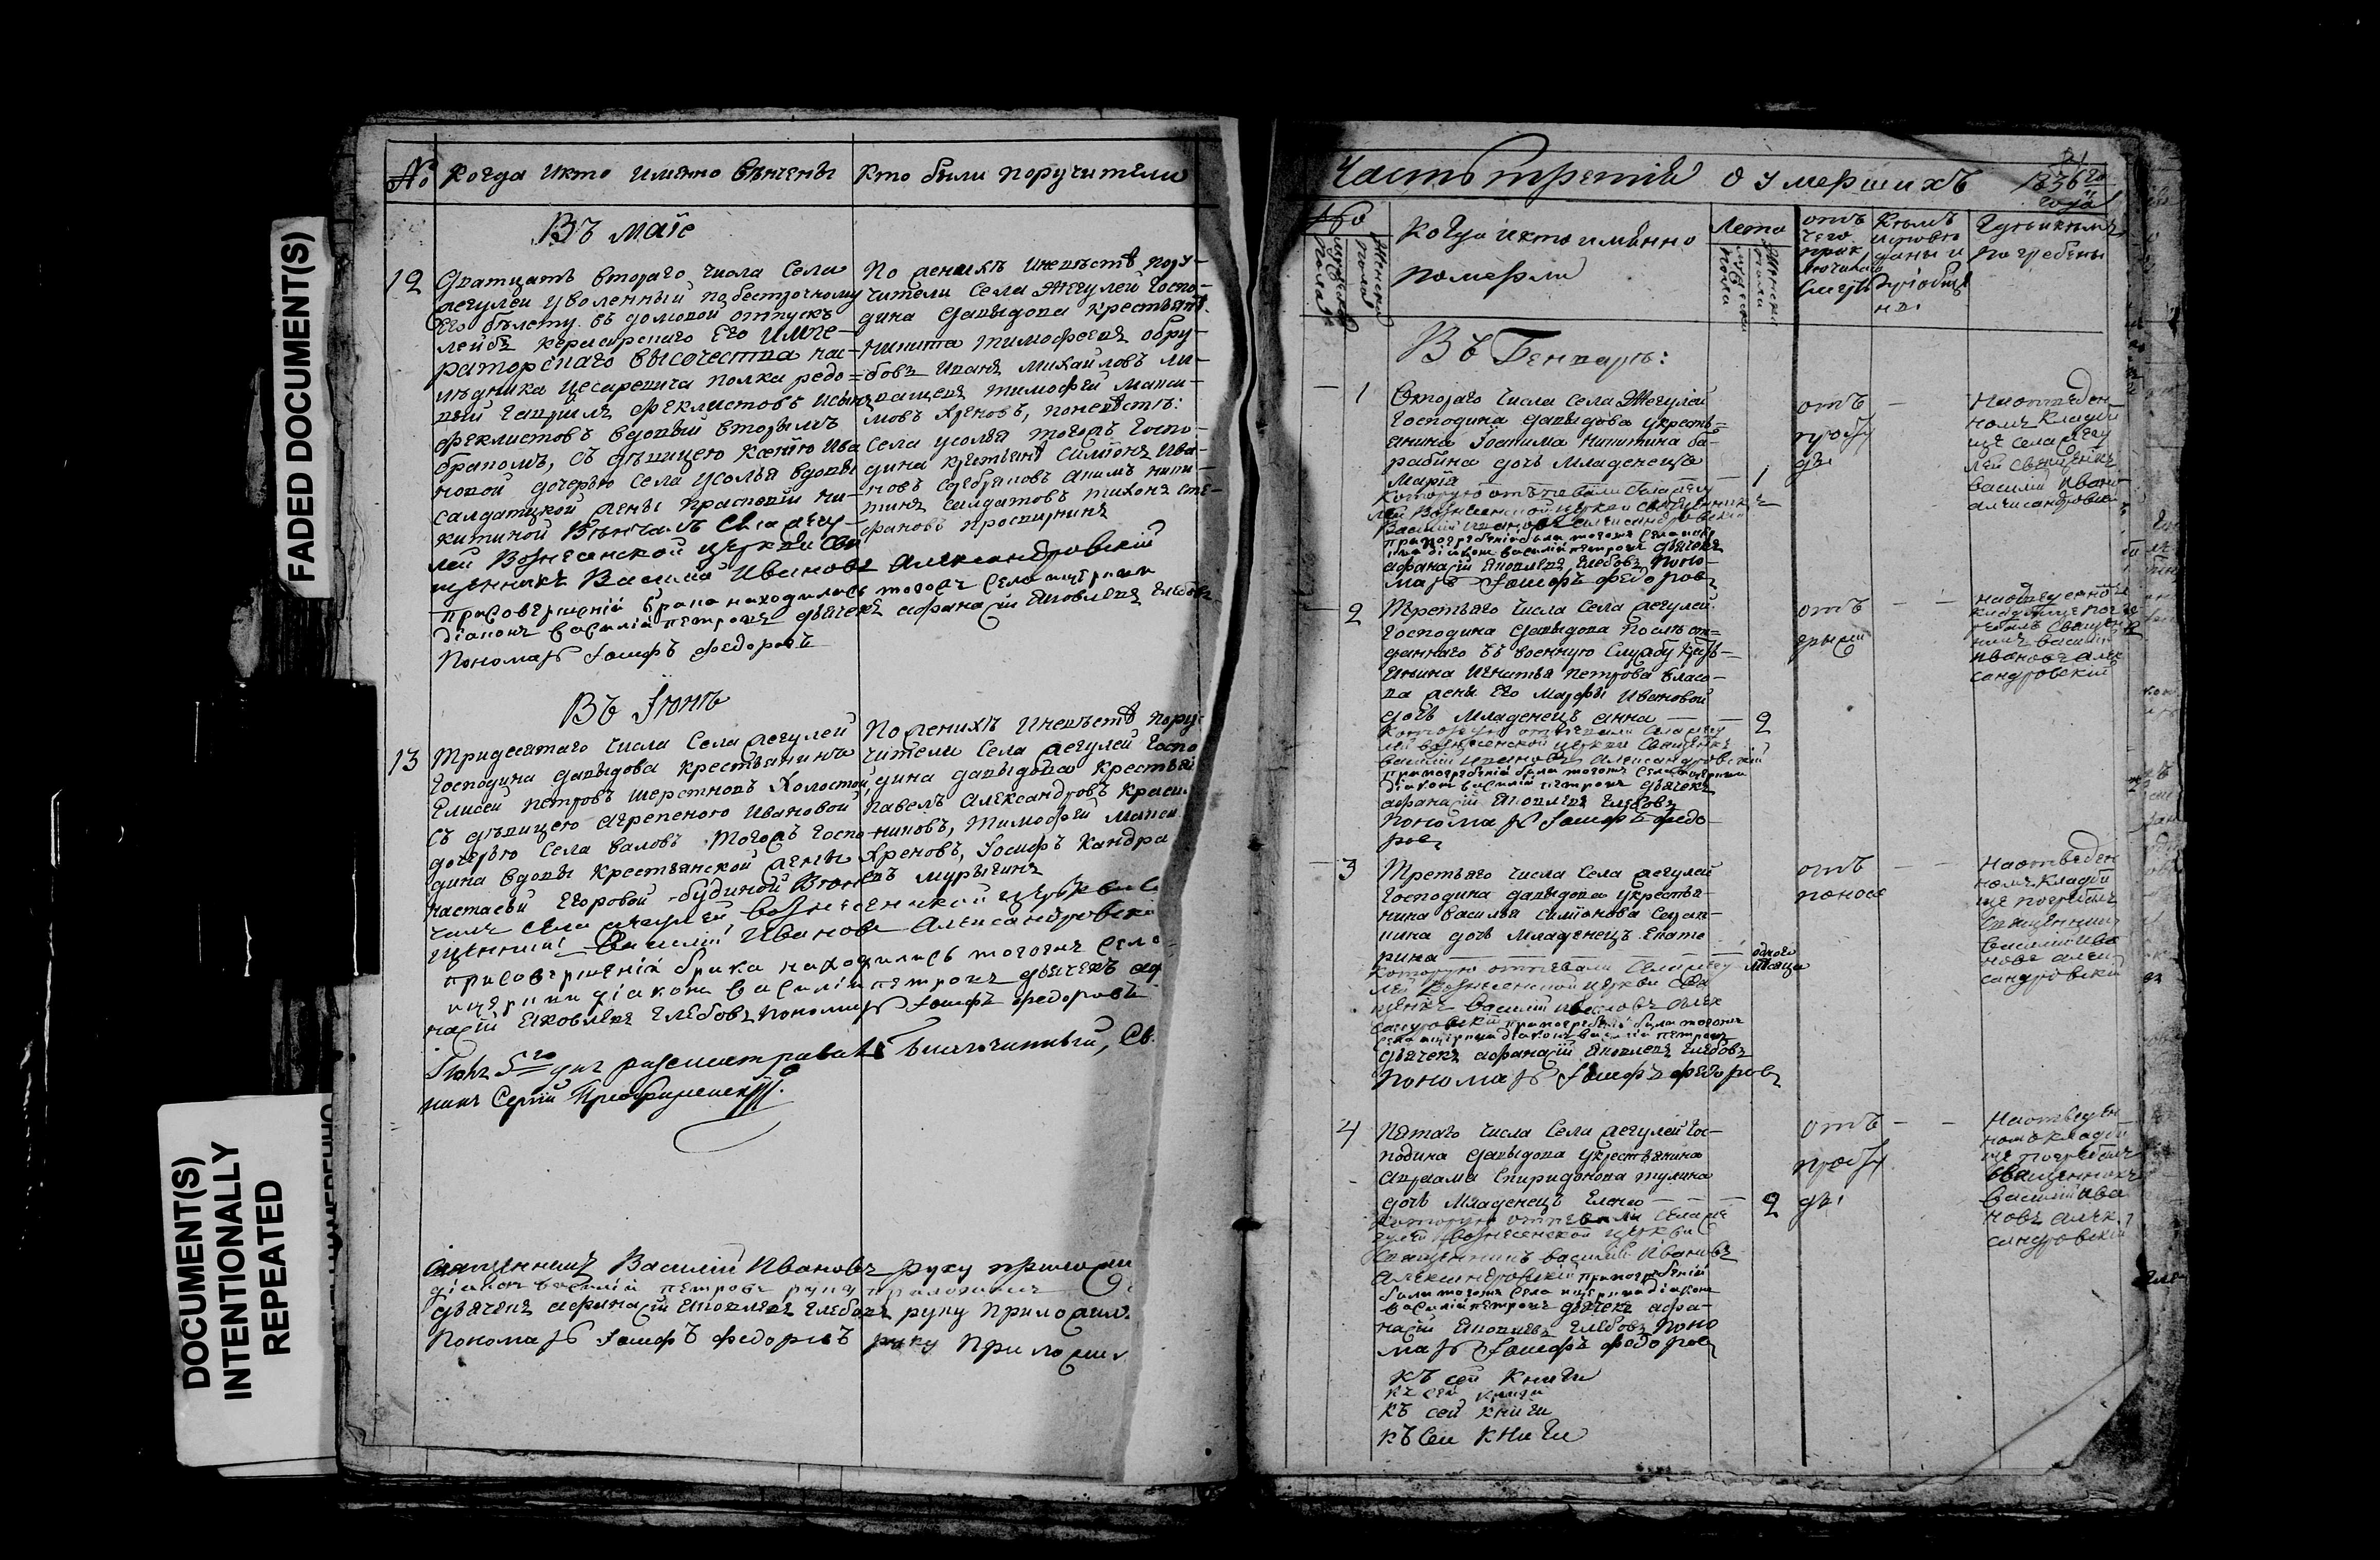 FADED DOCUMENT(S)
DOCUMENT(S)
INTENTIONALLY
REPEATED
№ Когда и кто именно венчены
Кто были поручители
Въ маїе
12 Дватцать втораго числа Села
уволенный по безсрочному
его билету въ домовой отпускъ
лейбъ Его Импе-
раторскаго высочества нас-
лѣдника цесаревича полка рядо-
вый Гаврилъ Феклистовъ
Феклистовъ вдовый вторымъ
бракомъ, съ дѣвицею Ксенїю Ива
новой дочерью села усолья вдовы
салдатской жены Прасковїи Ни-
китиной Вѣнчалъ Села Жегу-
лей Вознесенской церкви Свя
щенникъ Василїй Ивановъ Александровскїй
присовершенїи брака находились тогожъ села
дїаконъ Василїй Петровъ дьячекъ афанасїй Яковлевъ Глебовъ
Пономарь Їосифъ Федоровъ
По женихѣ и невѣсте пору-
чители села Жегулей Госпо-
дина Давыдова крестьяне
Никита Тимофеевъ
Иванъ Михайловъ
Тимофей Макси-
мовъ Хреновъ, по невѣсте:
Села усолья тогожъ Госпо-
дина крестьяне Симїонъ Ива-
новъ Серебряковъ Акимъ Ники-
тинъ Салдатовъ Тихонъ Сте-
фановъ
Въ Їюнѣ
13 Тридесятаго числа Села Жегулей
Господина Давыдова Крестьянинъ
Елисей Петровъ Шерстновъ Холостой,
съ дѣвицею агрепеною Ивановой
дочерью Села Валовъ тогожъ Госпо-
дина вдовы Крестьянской жены
Настасьи Егоровой Будиной Вѣн-
чалъ Села Жегулей Вознесенской церкви С
щенникъ Василїй Ивановъ Александровскї
присовершенїи брака находились тогожъ Села
дїаконъ Василїй Петровъ дьячекъ аф
насїй Яковлевъ Глебовъ Пономарь Їосифъ Федоровъ
По женихѣ и невѣсте пору-
чители Села Жегулей Госпо
дина Давыдова Крестьяне
Павелъ Александровъ
Тимофей Макси
Хреновъ, Їосифъ Кандра
евъ Мурыгинъ
Їюля 5го дня разсматривалъ Благочинный, Св.
никъ Сергїй Преображенскїй.
Священникъ Василїй Ивановъ руку приложи
дїаконъ Василїй Петровъ руку приложилъ
дьячекъ афанасїй Яковлевъ Глебовъ руку приложил.
Пономарь Їосифъ Федоровъ руку приложил
Часть третїя о умершихъ 1836го года
№
Мужеска пола
Женска пола
Когда и кто именно
померли
Лета
Мужеска пола
Женска пола
отъ чего приключилась смерть
Кемъ исповеданы и прїобщены
Где и кемъ
погребены
Въ Генварѣ:
1 Втораго числа Села Жегулей
Господина Давыдова у крестья-
нина Їоакима Никитина
дочь младенецъ
Марїя 1
которую отпевали Села Жегу
лей Вознесенской церкви Священникъ
Василїй Ивановъ Александровскїй
при погребенїи были тогожъ Села
дїаконъ Василїй Петровъ дьячекъ
афанасїй Яковлевъ Глебовъ Поно-
марь Їосифъ Федоровъ
отъ
простуды
На отведен
номъ кладби
ще села Жегу
лей Священикъ
Василїй Ивано
Александровски
2 Третьяго числа Села Жегулей
Господина Давыдова после от-
даннаго въ военную Службу Кресть-
янина Игнатья Петрова Власо-
ва жены его Марфы Ивановой
дочь младенецъ анна 2
Которую отпевали Села Жегу
лей Вознесенской церкви Священикъ
Василїй Ивановъ Александровскїй
при погребенїи были тогожъ Села
дїаконъ Василїй Петровъ дьячекъ
афанасїй Яковлевъ Глебовъ
Пономарь Їосифъ Федо
ровъ
отъ
грыжи
на отведенномъ
Василїй
Ивановъ Алек
сандровскїй
3 Третьяго числа Села Жегулей
Господина Давыдова у крестья-
нина Василья Симїонова
дочь младенецъ Екате
рина одного месяца
Которую отпевали Села Жегу
лей Вознесенской церкви Свя
щеникъ Василїй Ивановъ Алек
сандровскїй при погребенїи были тогожъ
Села дїаконъ Василїй Петровъ
дьячекъ афанасїй Яковлевъ Глебовъ
Пономарь Їосифъ Федоровъ
отъ
поноса
На отведен
номъ кладби
ще погребалъ
Священникъ
Василїй Ива
новъ алек
сандровскїй
4 Пятаго числа Села Жегулей Гос-
подина Давыдова у крестьянина
авраама Спиридонова Тулина
дочь младенецъ Елена 2
Которую отпевали Села Же
гулей Вознесенской церкви
Священникъ Василїй Ивановъ
Александровскїй при погребенїи
были тогожъ Села дїаконъ
Василїй Петровъ дьячекъ афа-
насїй Яковлевъ Глебовъ Поно
марь Їосифъ Федоровъ
отъ
простуды
На отведен
номъ кладби
ще погребалъ
Священникъ
Василїй Ива
новъ алек
сандровскїй
къ сей книги
къ сей книги
къ сей книги
къ сей книги